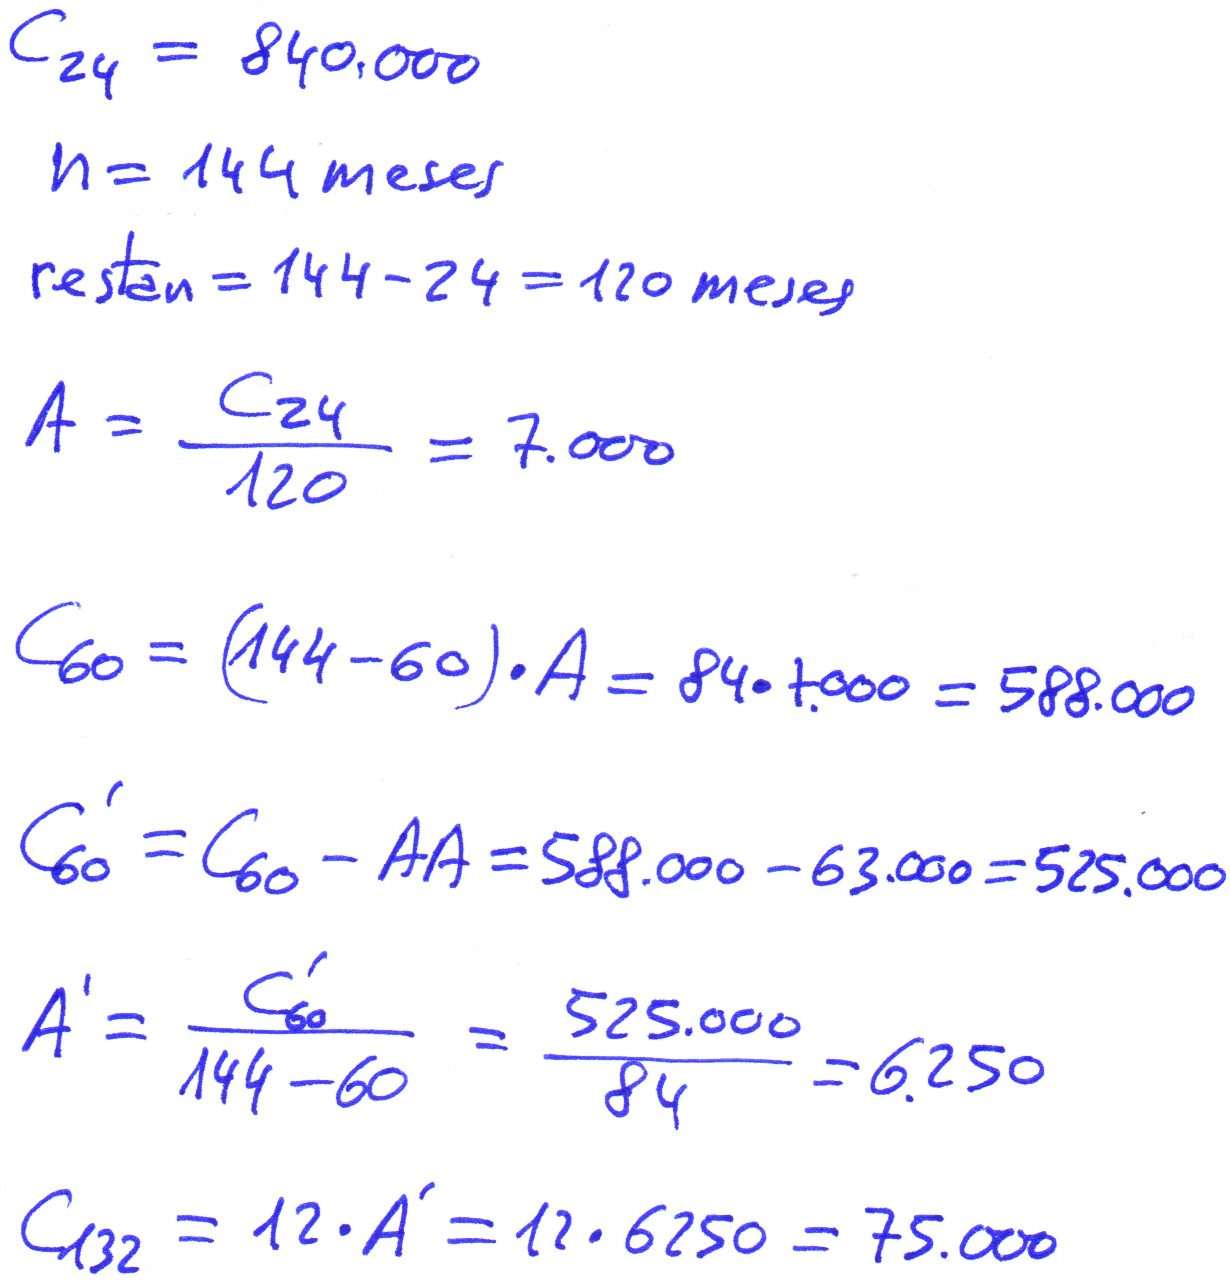 C₂₄ = 840.000
n = 144 meses
restan = 144 - 24 = 120 meses
A = C₂₄ / 120 = 7.000
C₆₀ = (144 - 60) · A = 84 · 7.000 = 588.000
C₆₀' = C₆₀ - AA = 588.000 - 63.000 = 525.000
A' = C₆₀' / 144 - 60 = 525.000 / 84 = 6.250
C₁₃₂ = 12 · A' = 12 · 6250 = 75.000